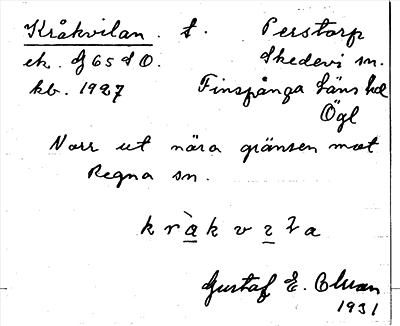 Kråkvilan . t. Perstorp
ek. G 65 S O. Skedevi sn.
kb. 1927 Finspånga läns hd
Ögl
Norr ut nära gränsen mot
Regna sn.
Gustaf E.
1931